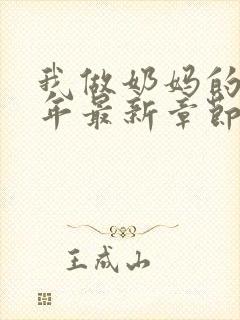 我做奶妈的
年最新章节
王成山